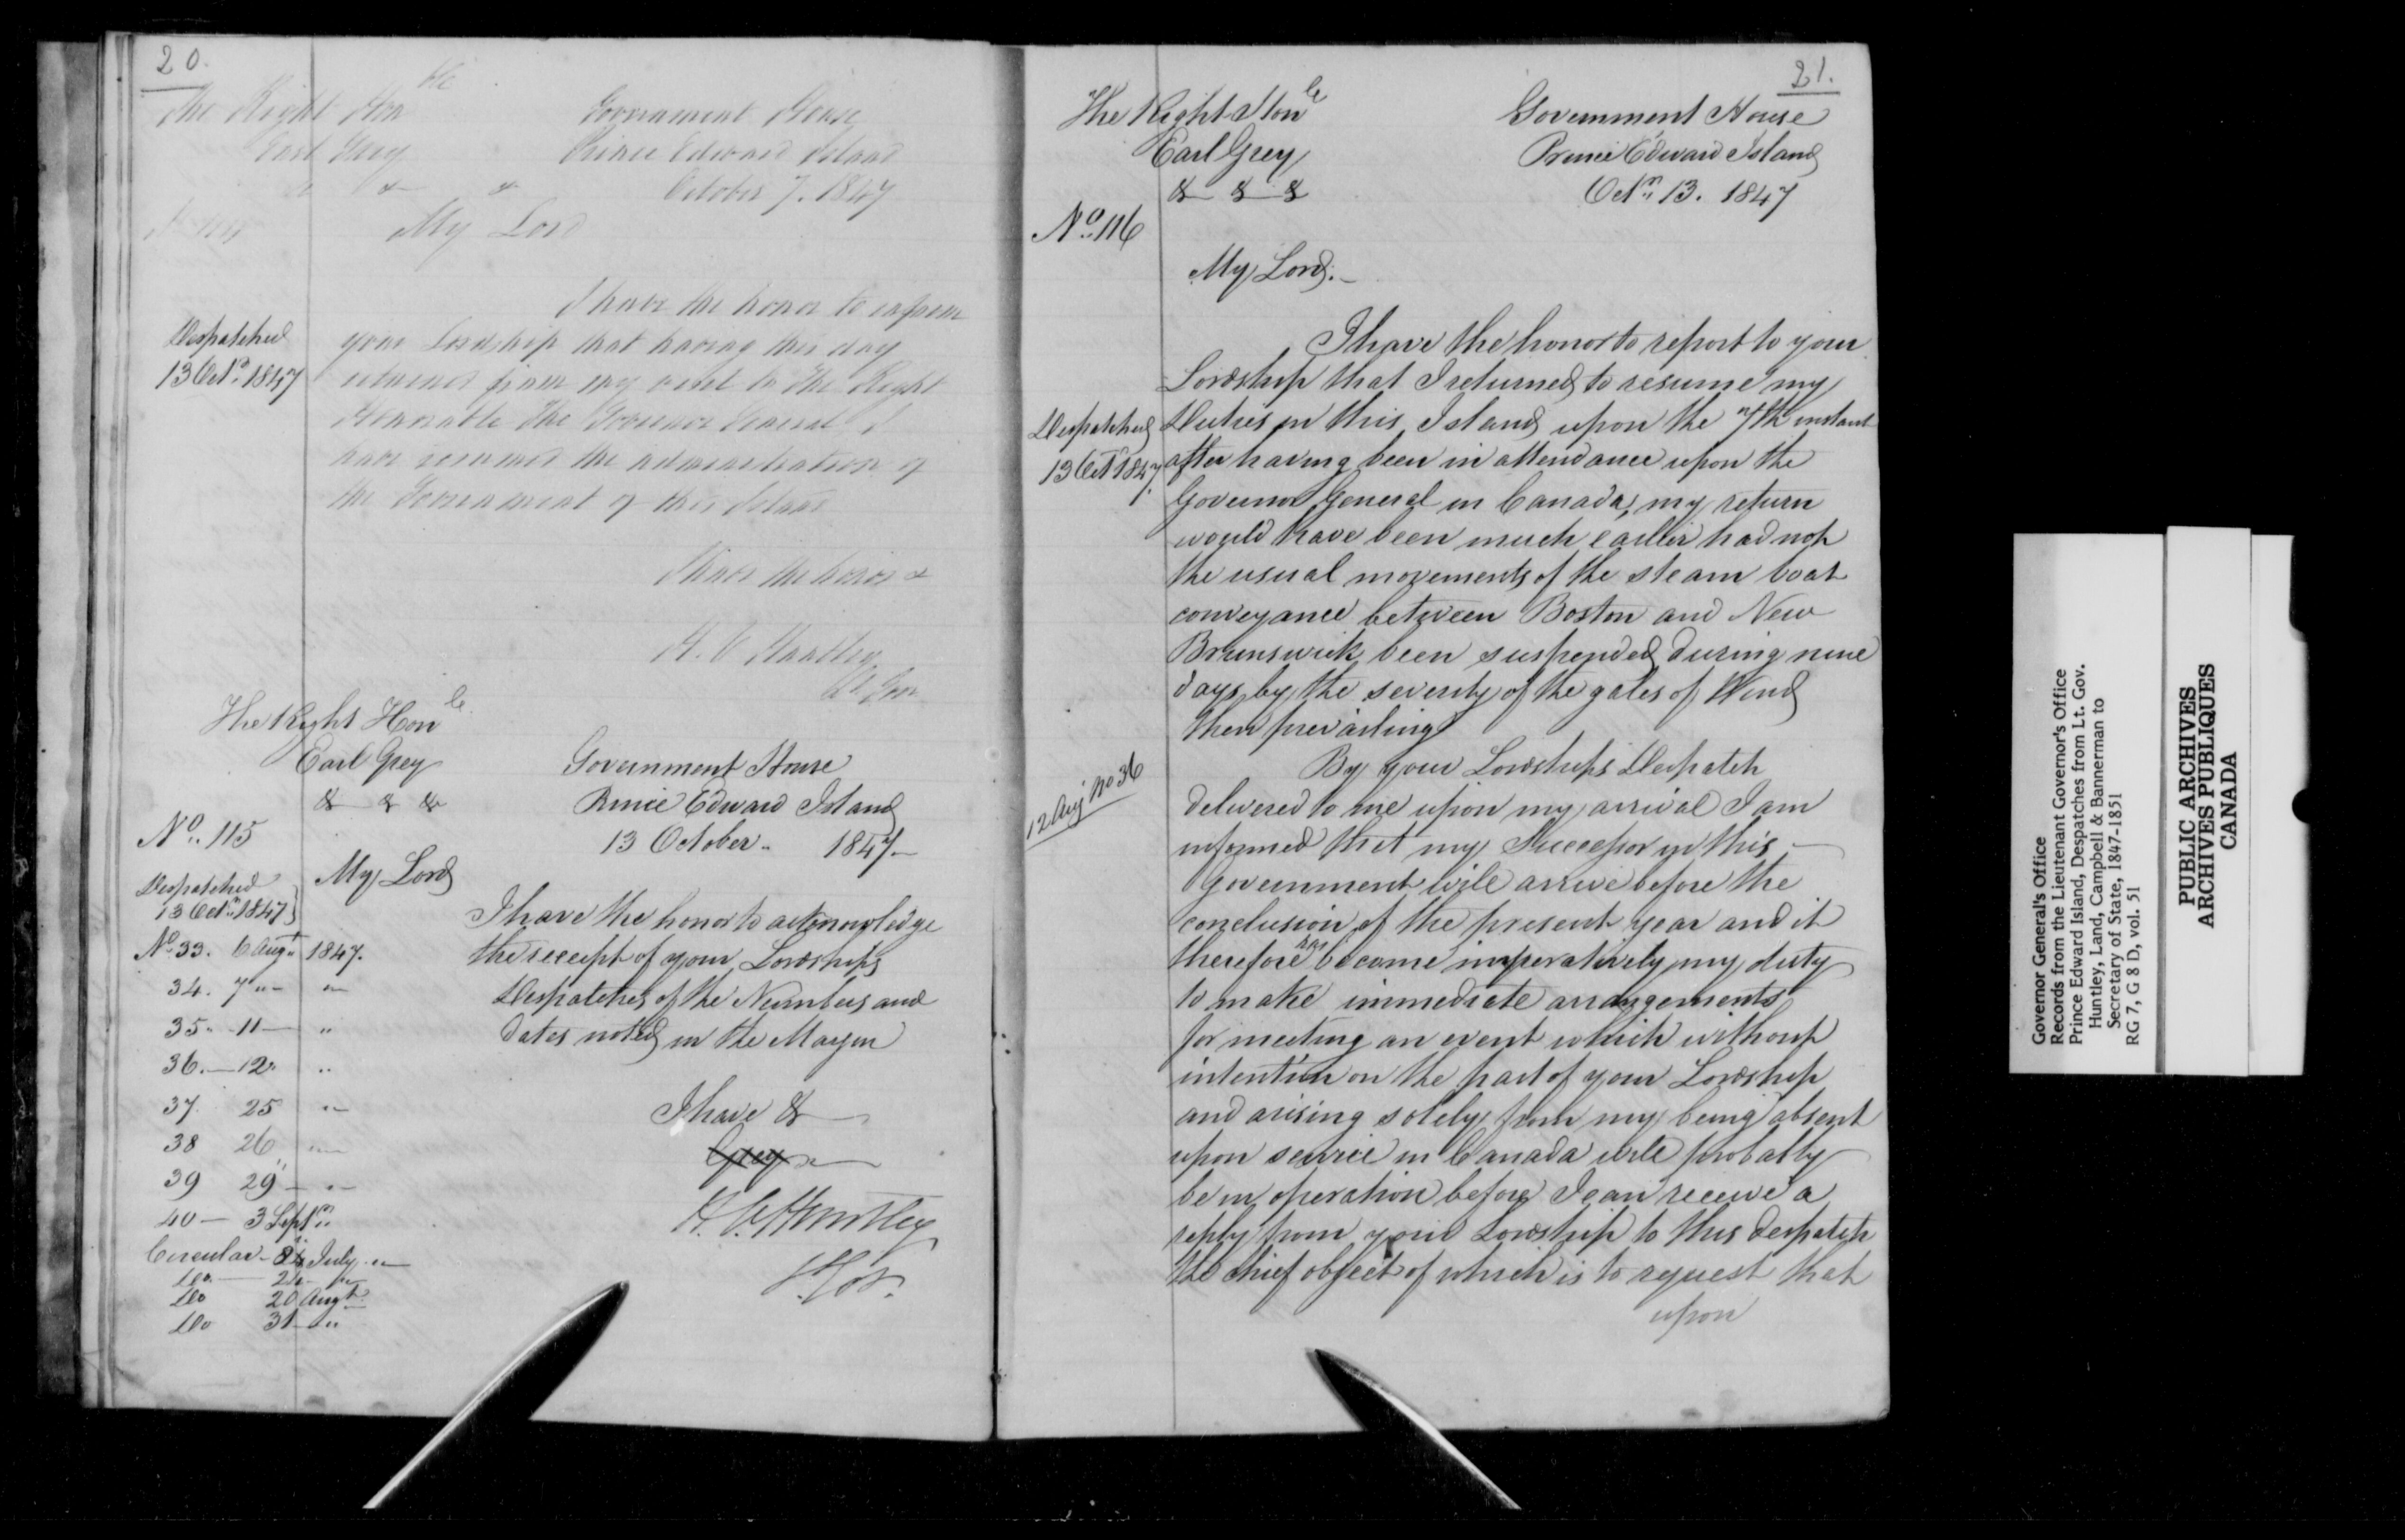 20.
The Right Honble
Earl Grey
& & &
Government House
Prince Edward Island
October 7. 1847
My Lord
I have the honor to inform
Despatched
13 Octr. 1847
your Lordship that having this day
returned from my visit to The Right
Honorable the Governor General I
have resumed the administration of
the Government of this Island
I have the honor &
H. V. Huntley
Lt Gov
The Right Honle
Earl Grey
& & &
Government House
Prince Edward Island
13 October. 1847.
No. 115
My Lord
Despatched
13 Octr. 1847
I have the honor to acknowledge
the receipt of your Lordships
Despatches of the Numbers and
dates noted in the Margin
No. 33. 6 Augt. 1847.
34. 7 " "
35. 11 "
36. 12 "
37. 25 "
38 26 "
39 29 "
40 3 Septr. "
Circular - July "
Do 24 "
Do 20 Augt.
Do 31 "
I have &
Grey
H. V. Huntley
Lt. Gov.
21.
The Right Honle
Earl Grey
& & &
Government House
Prince Edward Island
Octr. 13. 1847
No. 116
My Lord.
I have the honor to report to your
Lordship that I returned to resume my
Despatched
13 Oct 1847.
Duties in this Island upon the 7th instant
after having been in attendance upon the
Governor General in Canada, my return
would have been much earlier had not
the usual movements of the steam boat
conveyance between Boston and New
Brunswick been suspended during nine
days by the severity of the gales of Wind
then prevailing
12 Aug No 36
By your Lordships Despatch
delivered to me upon my arrival I am
informed that my Successor in this
Government will arrive before the
conclusion of the present year and it
therefore has become imperatively my duty
to make immediate arrangements
for meeting an event which without
intention on the part of your Lordship
and arising solely from my being absent
upon service in Canada will probably
be in operation before I can receive a
reply from your Lordship to this despatch
the chief object of which is to request that
upon
Governor General's Office
Records from the Lieutenant Governor's Office
Prince Edward Island, Despatches from Lt. Gov.
Huntley, Land, Campbell & Bannerman to
Secretary of State, 1847-1851
RG 7, G 8 D, vol. 51
PUBLIC ARCHIVES
ARCHIVES PUBLIQUES
CANADA